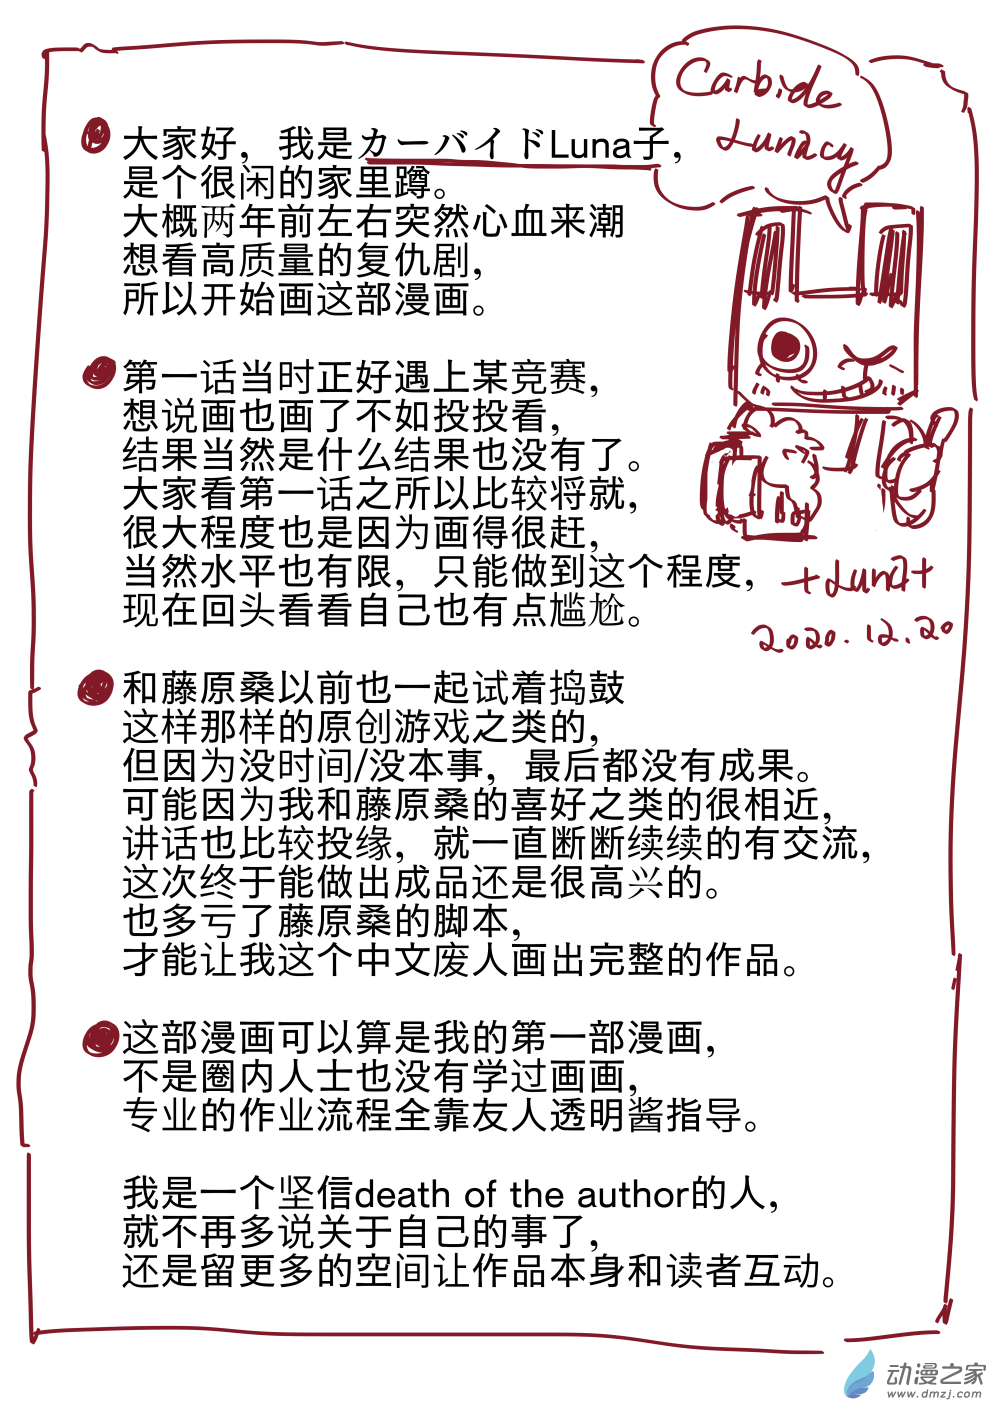 Carbide
Lunacy
大家好，我是カーバイドLuna子，
是个很闲的家里蹲。
大概两年前左右突然心血来潮
想看高质量的复仇剧，
所以开始画这部漫画。
第一话当时正好遇上某竞赛，
想说画也画了不如投投看，
结果当然是什么结果也没有了。
大家看第一话之所以比较将就，
很大程度也是因为画得很赶，
当然水平也有限，只能做到这个程度，
现在回头看看自己也有点尴尬。
+Luna+
2020.12.20
和藤原桑以前也一起试着捣鼓
这样那样的原创游戏之类的，
但因为没时间/没本事，最后都没有成果。
可能因为我和藤原桑的喜好之类的很相近，
讲话也比较投缘，就一直断断续续的有交流，
这次终于能做出成品还是很高兴的。
也多亏了藤原桑的脚本，
才能让我这个中文废人画出完整的作品。
这部漫画可以算是我的第一部漫画，
不是圈内人士也没有学过画画，
专业的作业流程全靠友人透明酱指导。
我是一个坚信death of the author的人，
就不再多说关于自己的事了，
还是留更多的空间让作品本身和读者互动。
动漫之家
www.dmzj.com